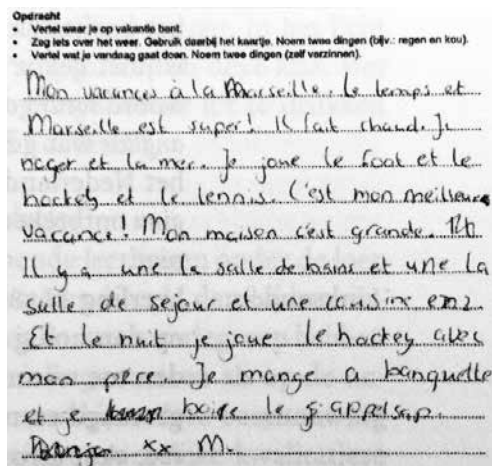 Opdracht
• Vertel waar je op vakantie bent.
• Zeg iets over het weer. Gebruik daarbij het kaartje. Noem twee dingen (bijv.: regen en kou).
• Vertel wat je vandaag gaat doen. Noem twee dingen (zelf verzinnen).
Mon vacances à la Marseille. Le temps et
Marseille est super! Il fait chaud. Je
nager et la mer. Je joue le foot et le
hockey et le tennis. C'est mon meilleure
vacance! Mon maison c'est grande.
Il y a une la salle de bains et une la
salle de sejour et une cousine enz.
Et le nuit je joue le hockey avec
mon père. Je mange a banquette
et je boire le appelsap.
xx M.